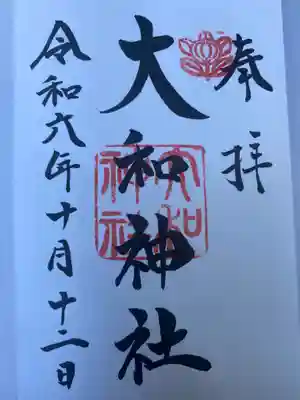 奉拝
大和神社
大和
神社
令和六年十月十二日